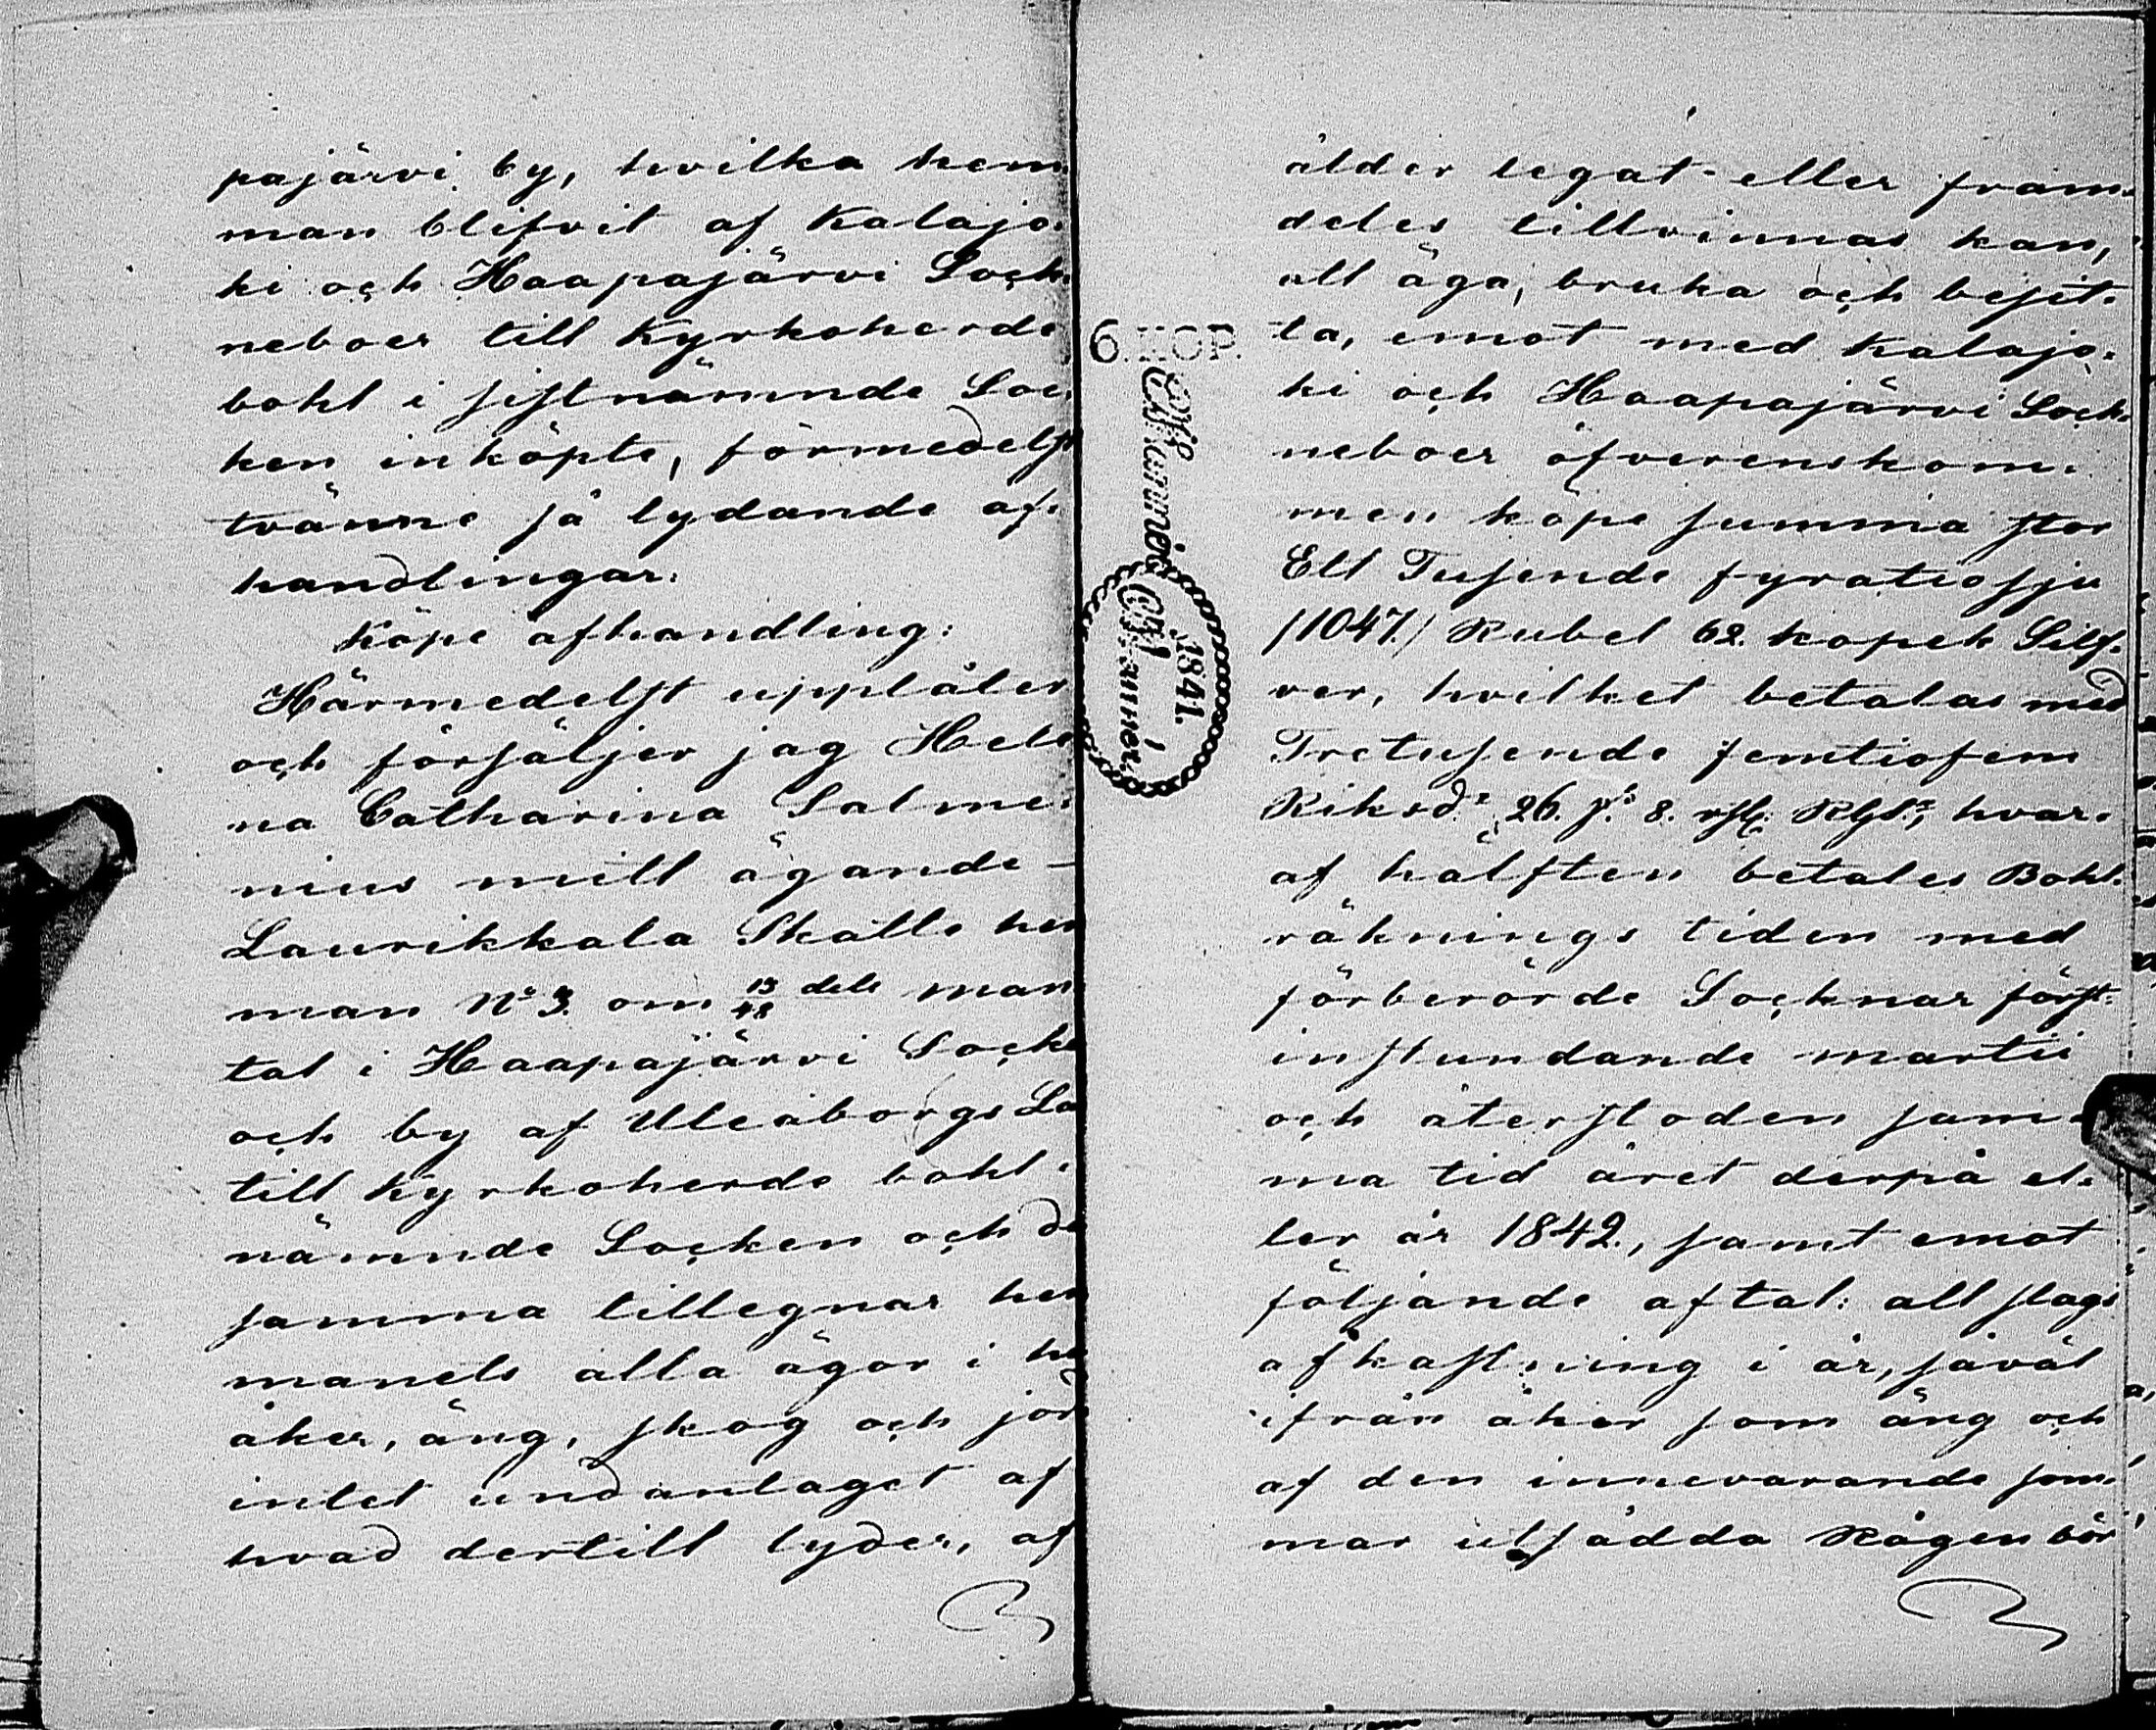 pajärvi by, hvilka hem-
man blifvit af Kalajo-
ki och Haapajärvi Sock-
neboer till Kyrkoherde
bohl i sistnämnde Soc-
ken inköpte, förmedelst
tvänne så lydande af-
handlingar:
Köpe afhandling:
Härmedelst upplåter
och försäljer jag Hele
na Catharina Salme-
nius mitt ägande
Laurikkala Skatte hem
man No 3. om 13/48 dels man
tal i Haapajärvi Socken
och by af Uleåborgs Lä
till Kyrkoherde bohl i
nämnde Socken och de
samma tillegnar hem
manets alla ägor i
åker, äng, skog och jord
intet undantaget af
hvad dertill lyder, af
6. KOP.
1841.
ålder legat eller fram-
deles tillvinnas kan,
att äga, bruka och besit-
ta, emot med Kalajo-
ki och Haapajärvi Sock-
neboer öfverenskom-
men köpe summa stor
Ett Tusende fyratiosju
/1047./ Rubel 62. kopek Silf-
ver, hvilket betalas med
Tretusende femtiofem
Riksdr 26. s. 8. rst. Rgs., hvar-
af hälften betales Bohl-
räknings tiden med
förberörde Socknar först-
instundande martii
och återstoden sam-
ma tid året derpå el-
ler år 1842., samt emot
följande aftal: all slags
afkastning i år, såväl
ifrån åker som äng och
af den innevarande som-
mar utsådda Rågen bör